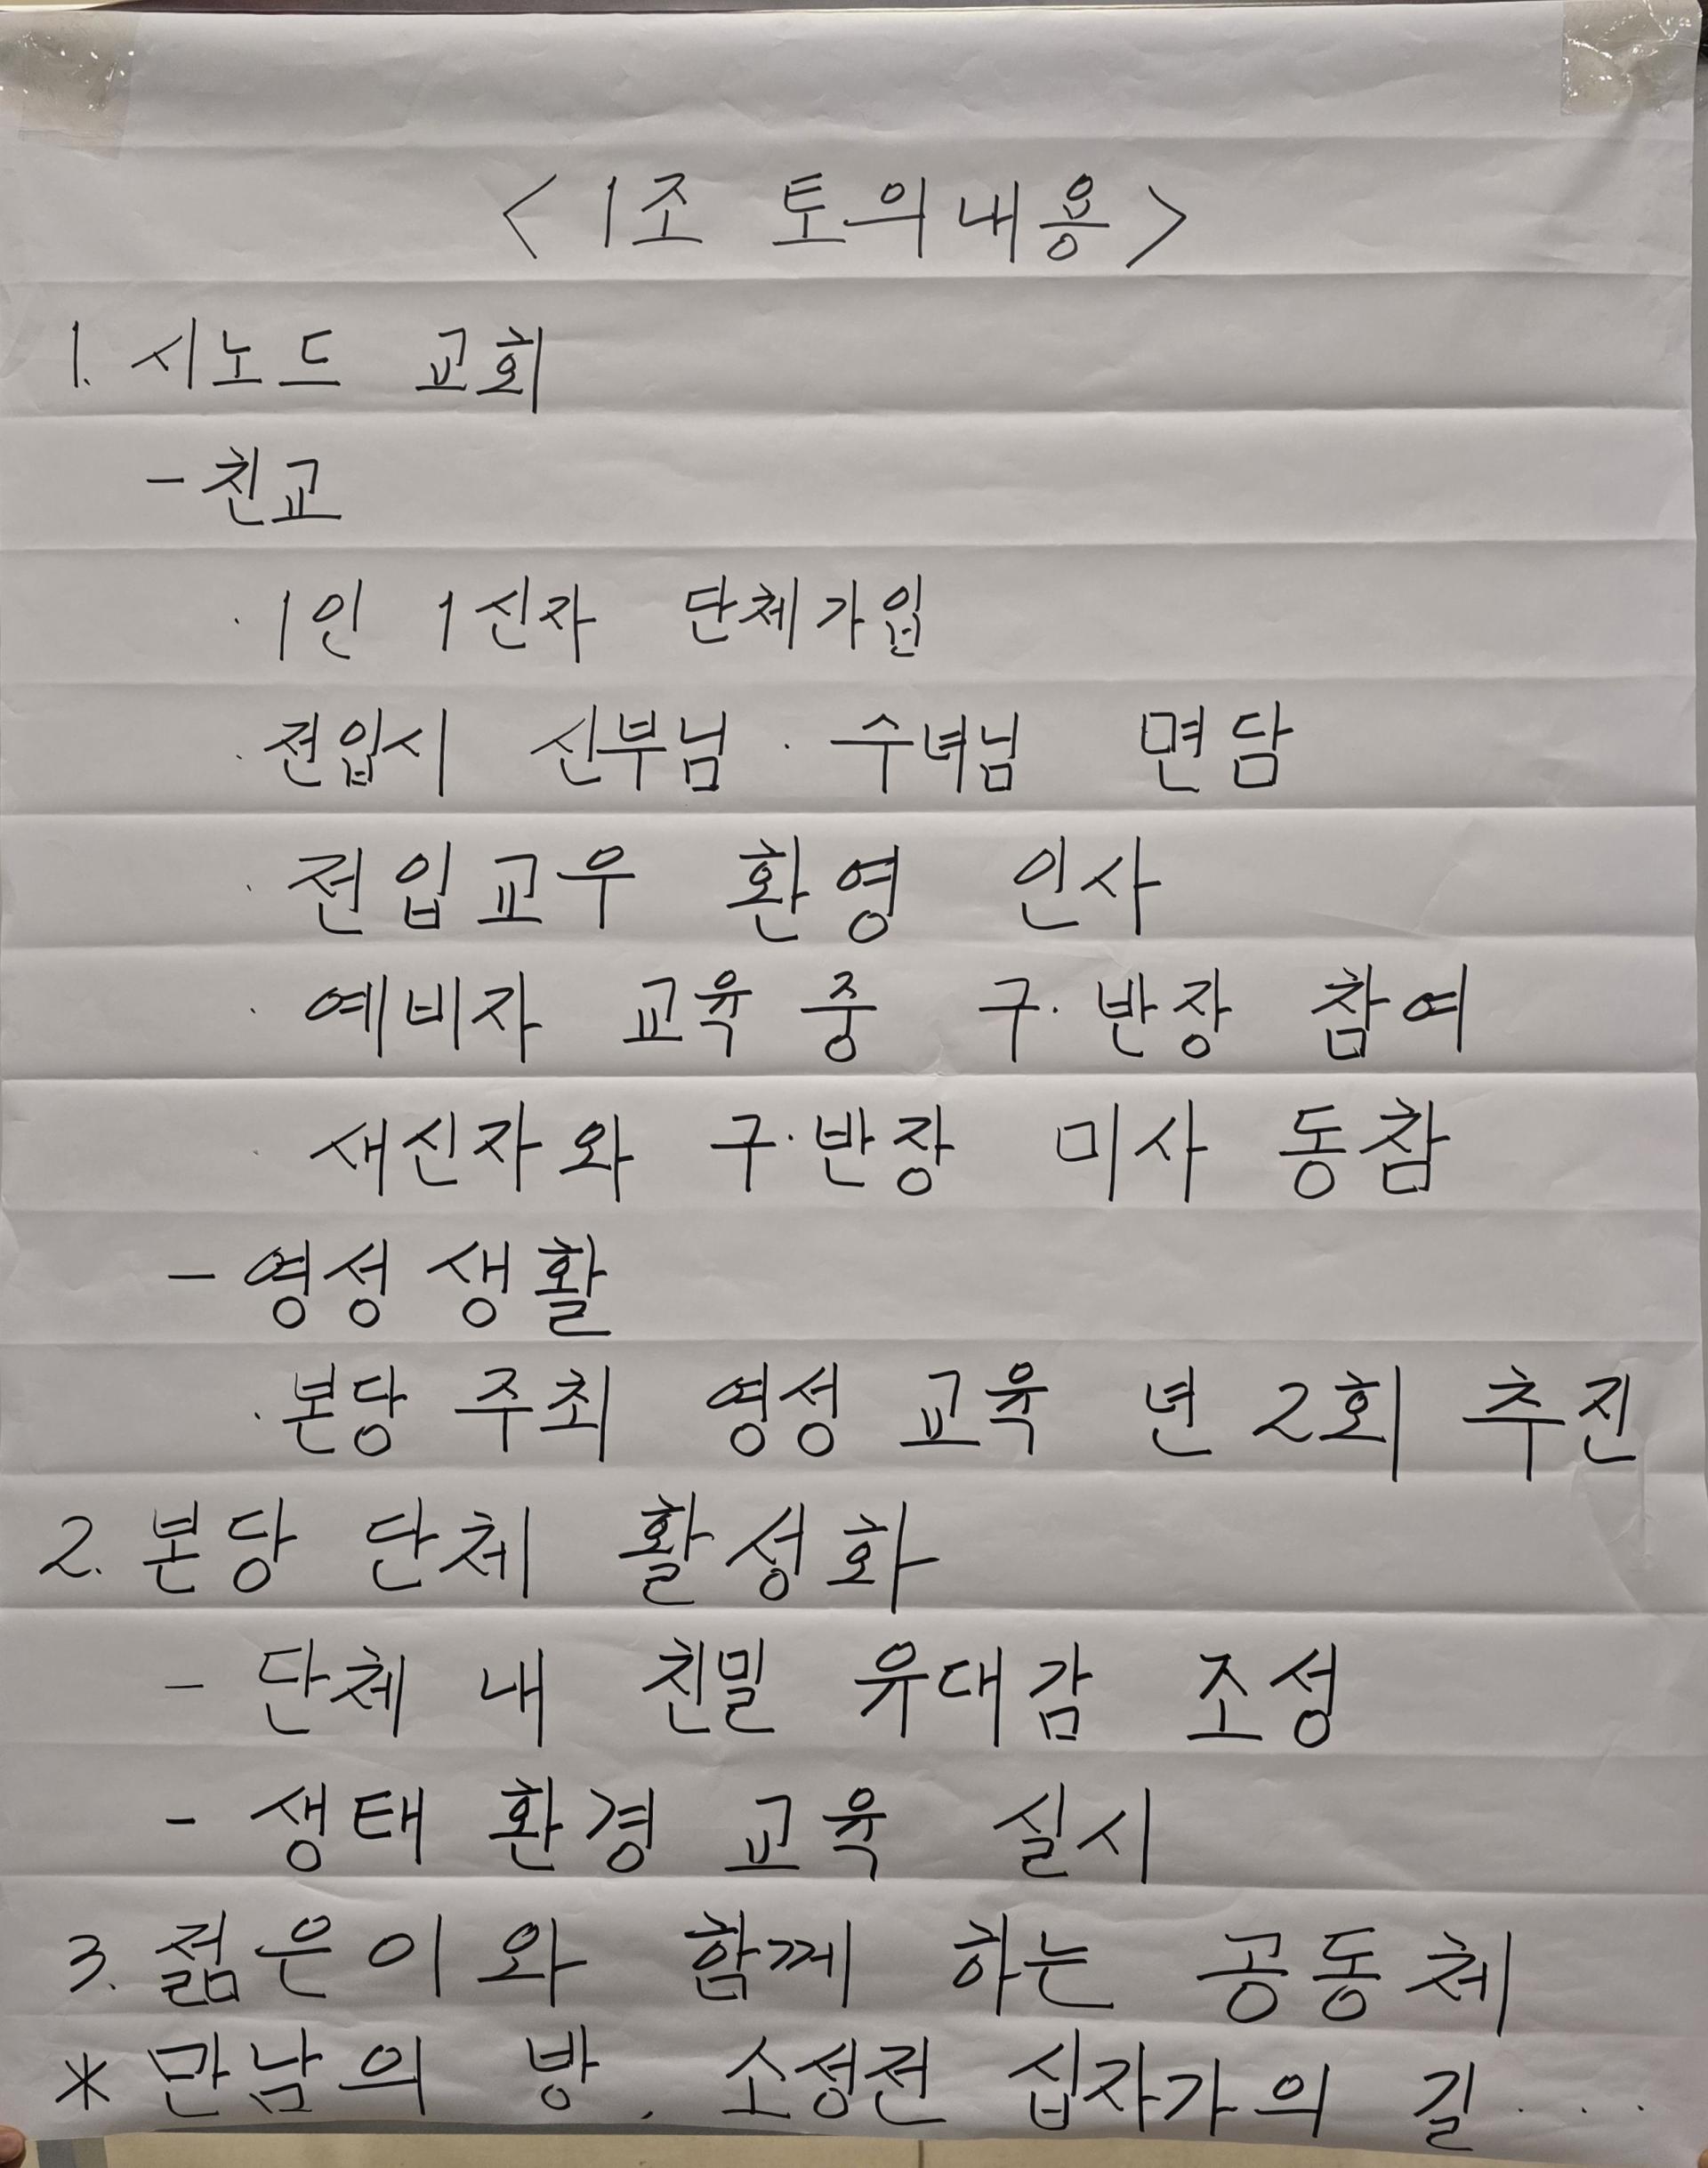 <1조 토의내용>
1. 시노드 교회
- 친교
· 1인 1신자 단체가입
· 전입시 신부님 · 수녀님 면담
· 전입교우 환영 인사
· 예비자 교육 중 구·반장 참여
· 새신자와 구·반장 미사 동참
- 영성생활
· 본당 주최 영성 교육 년 2회 추진
2. 본당 단체 활성화
- 단체 내 친밀 유대감 조성
- 생태 환경 교육 실시
3. 젊은이와 함께 하는 공동체
* 만남의 방, 소성전 십자가의 길 ...